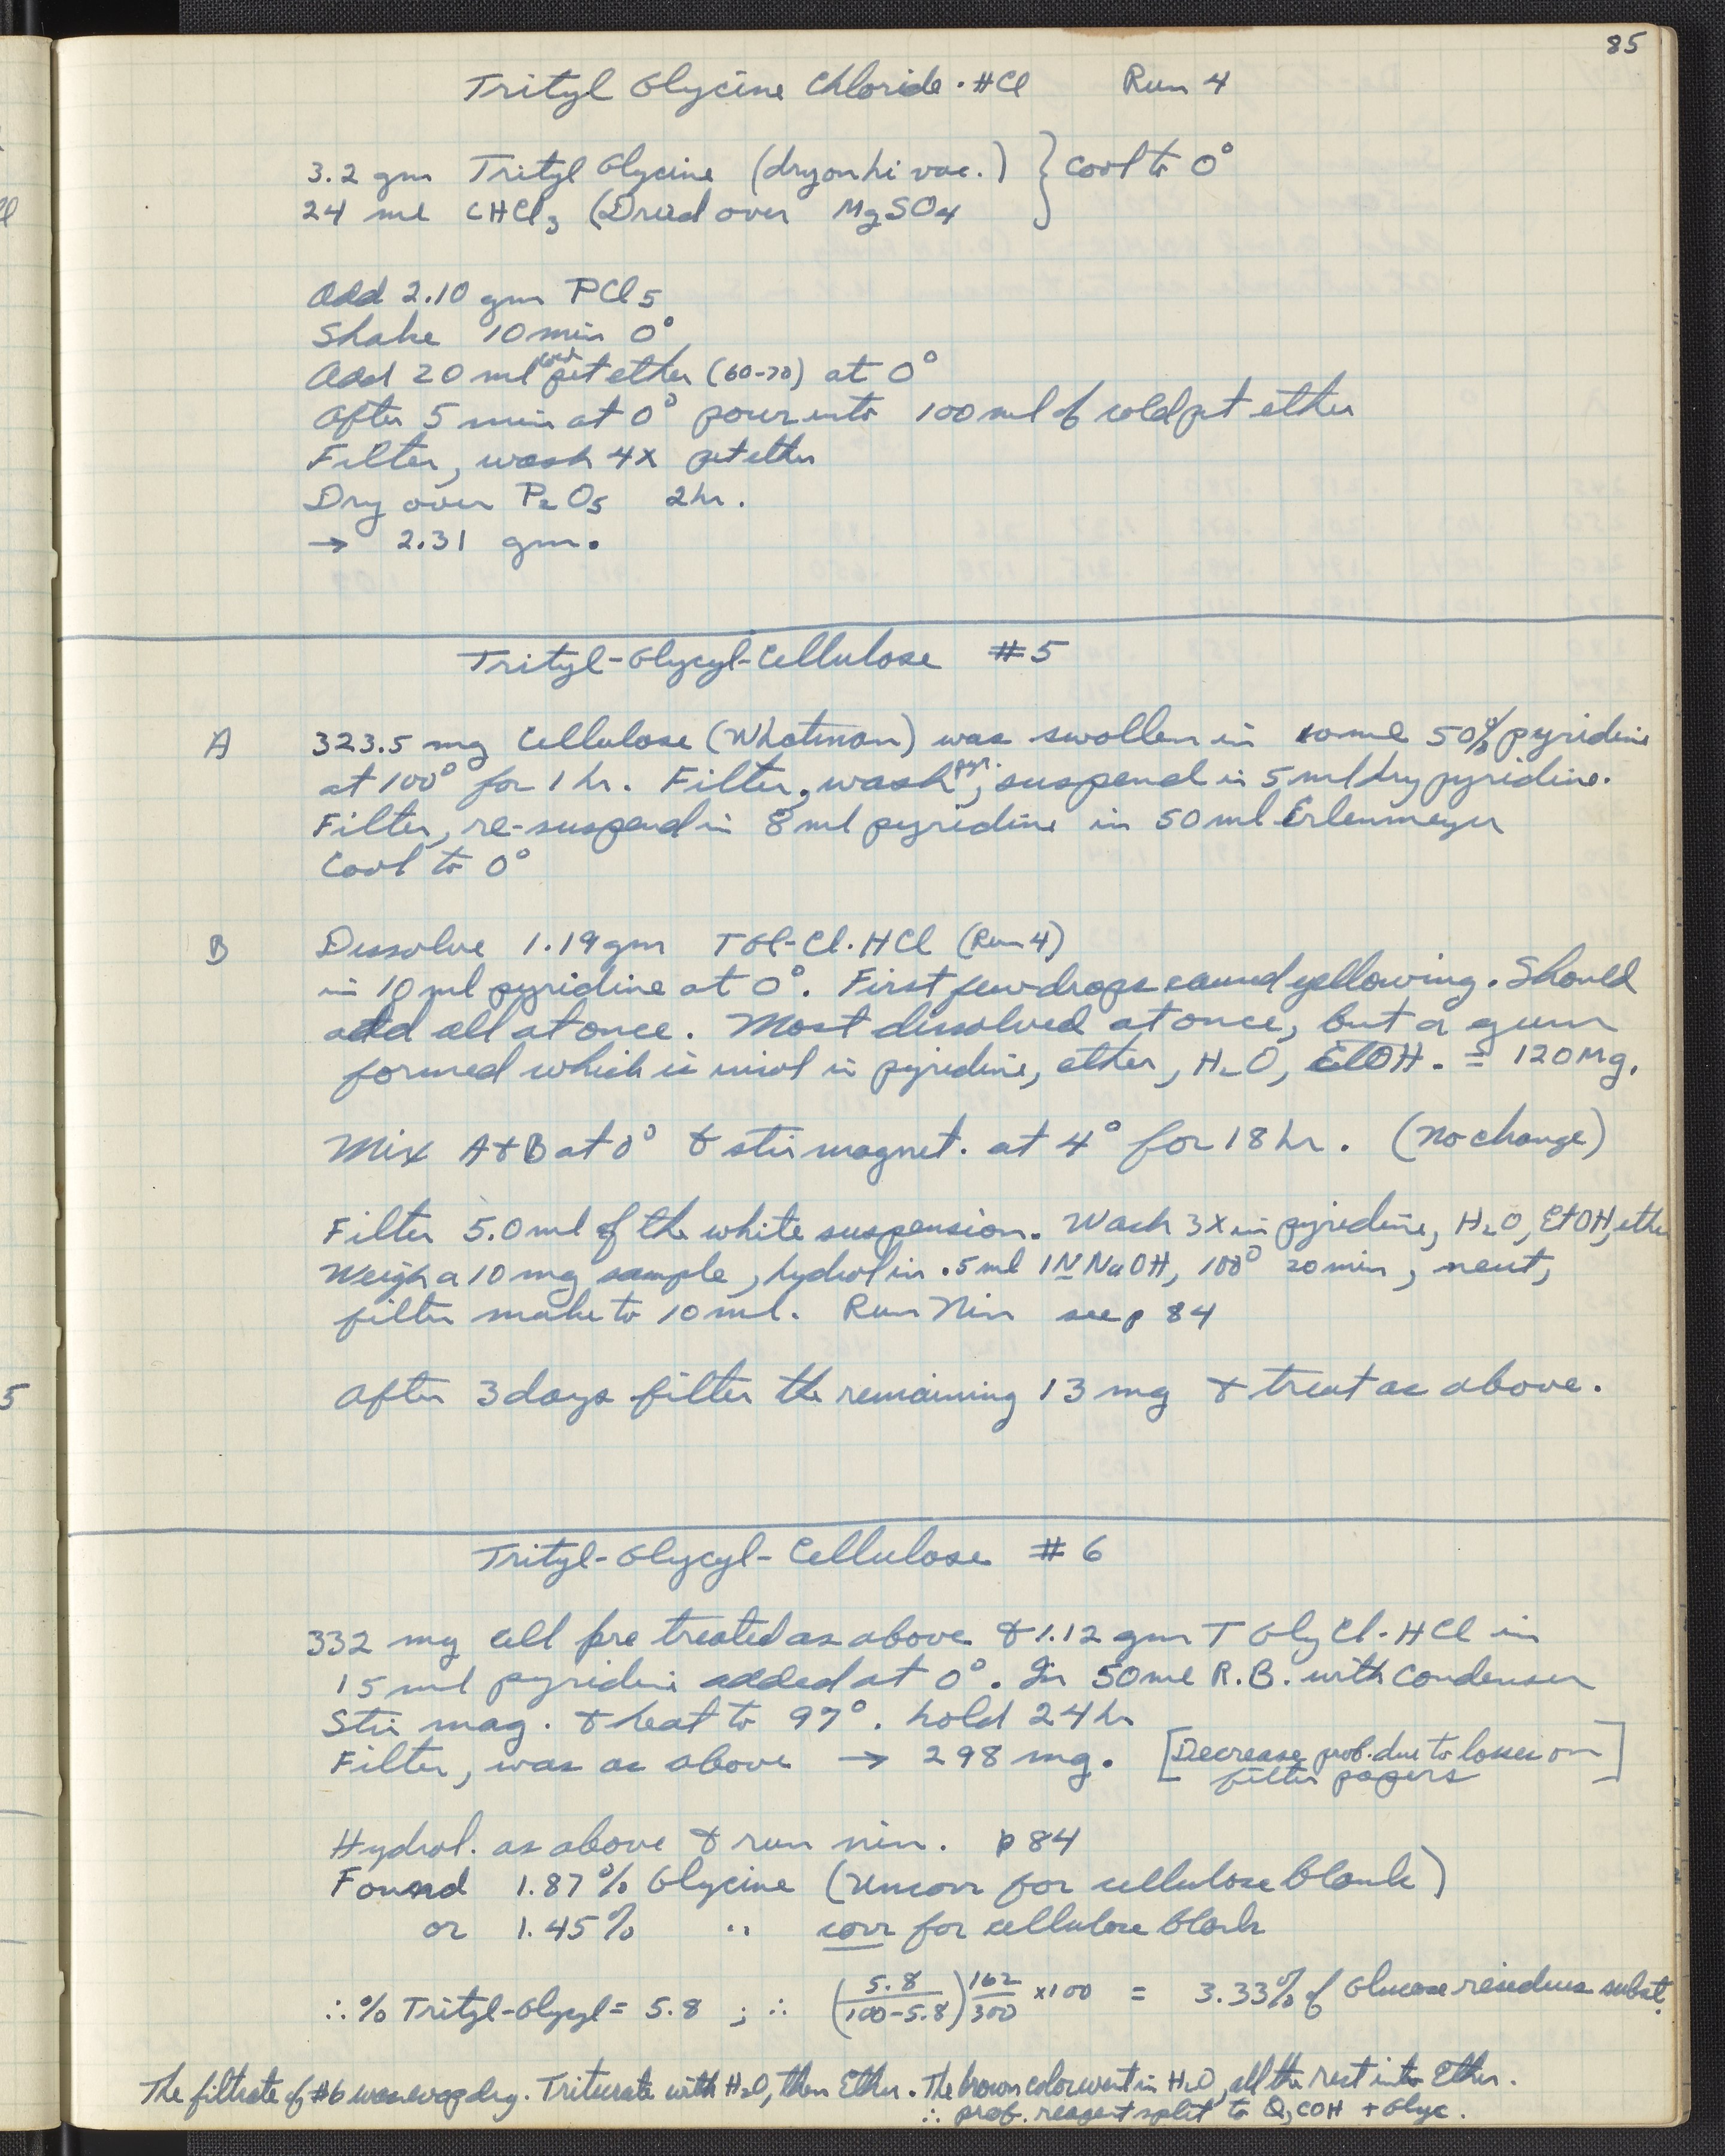 85
Trityl Glycine Chloride·HCl Run 4
3.2 gm Trityl Glycine (dry on hi vac.) } Cool to 0°
24 ml CHCl3 (Dried over MgSO4
Add 2.10 gm PCl5
Shake 10 min 0°
Add 20 ml cold pet ether (60-70) at 0°
After 5 min at 0° pour into 100 ml of cold pet ether
Filter, wash 4x pet ether
Dry over P2O5 2 hr.
→ 2.31 gm.
Trityl-Glycyl-Cellulose #5
A 323.5 mg Cellulose (Whatman) was swollen in 10 ml 50% pyridine
at 100° for 1 hr. Filter, wash pyr., suspend in 5 ml dry pyridine.
Filter, re-suspend in 8 ml pyridine in 50 ml Erlenmeyer
Cool to 0°
B Dissolve 1.19 gm TGl-Cl·HCl (Run 4)
in 10 ml pyridine at 0°. First few drops caused yellowing. Should
add all at once. Most dissolved at once, but a gum
formed which is insol in pyridine, ether, H2O, EtOH. = 120 Mg.
Mix A+B at 0° & stir magnet. at 4° for 18 hr. (no change)
Filter 5.0 ml of the white suspension. Wash 3x in pyridine, H2O, EtOH, ether
Weigh a 10 mg sample, hydrol in .5 ml 1N NaOH, 100° 20 min, neut,
filter make to 10 ml. Run Nin see p 84
After 3 days filter the remaining 13 mg & treat as above.
Trityl-Glycyl-Cellulose #6
332 mg cell pre treated as above & 1.12 gm T Gly Cl·HCl in
15 ml pyridine added at 0°. In 50 ml R.B. with condenser
Stir mag. & heat to 97°. hold 24 hr
Filter, was as above → 298 mg. [Decrease prob. due to losses on
filter papers]
Hydrol. as above & run nin. p 84
Found 1.87% Glycine (Uncorr for cellulose blank)
or 1.45% " corr for cellulose blank
∴ % Trityl-Glycyl = 5.8 ; ∴ (5.8/100-5.8) 162/300 x100 = 3.33% of Glucose residues subst.
The filtrate of #6 was evap dry. Triturate with H2O, then Ether. The brown color went in H2O, all the rest into Ether.
∴ prob. reagent split to Q3COH + Glyc.